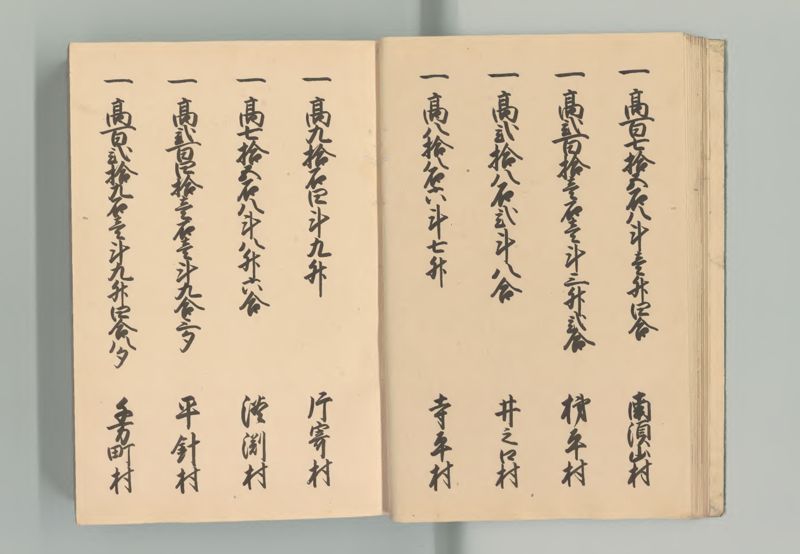 一 高百七拾五石八斗壱升四合 南須山村
一 高弐百拾壱石壱斗三升弐合 村
一 高弐拾八石弐斗八合 井之口村
一 高八拾八石六斗七升 寺平村
一 高九拾石四斗九升 片寄村
一 高七拾五石八斗八升六合 淵村
一 高弐百四拾壱石壱斗九合三夕 平針村
一 高百弐拾九石壱斗九升四合八夕 町村